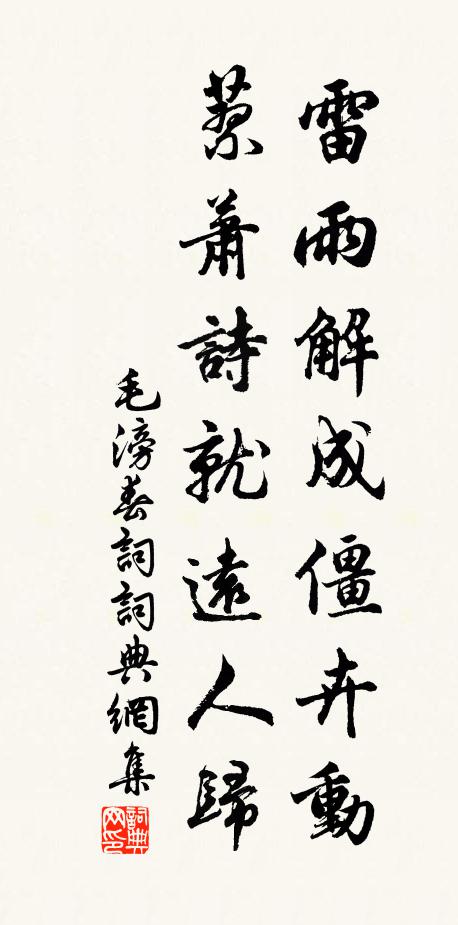 雷雨解成僵卉動
蓼蕭詩就遠人歸
毛滂春詞詞典網集
詞典
网印